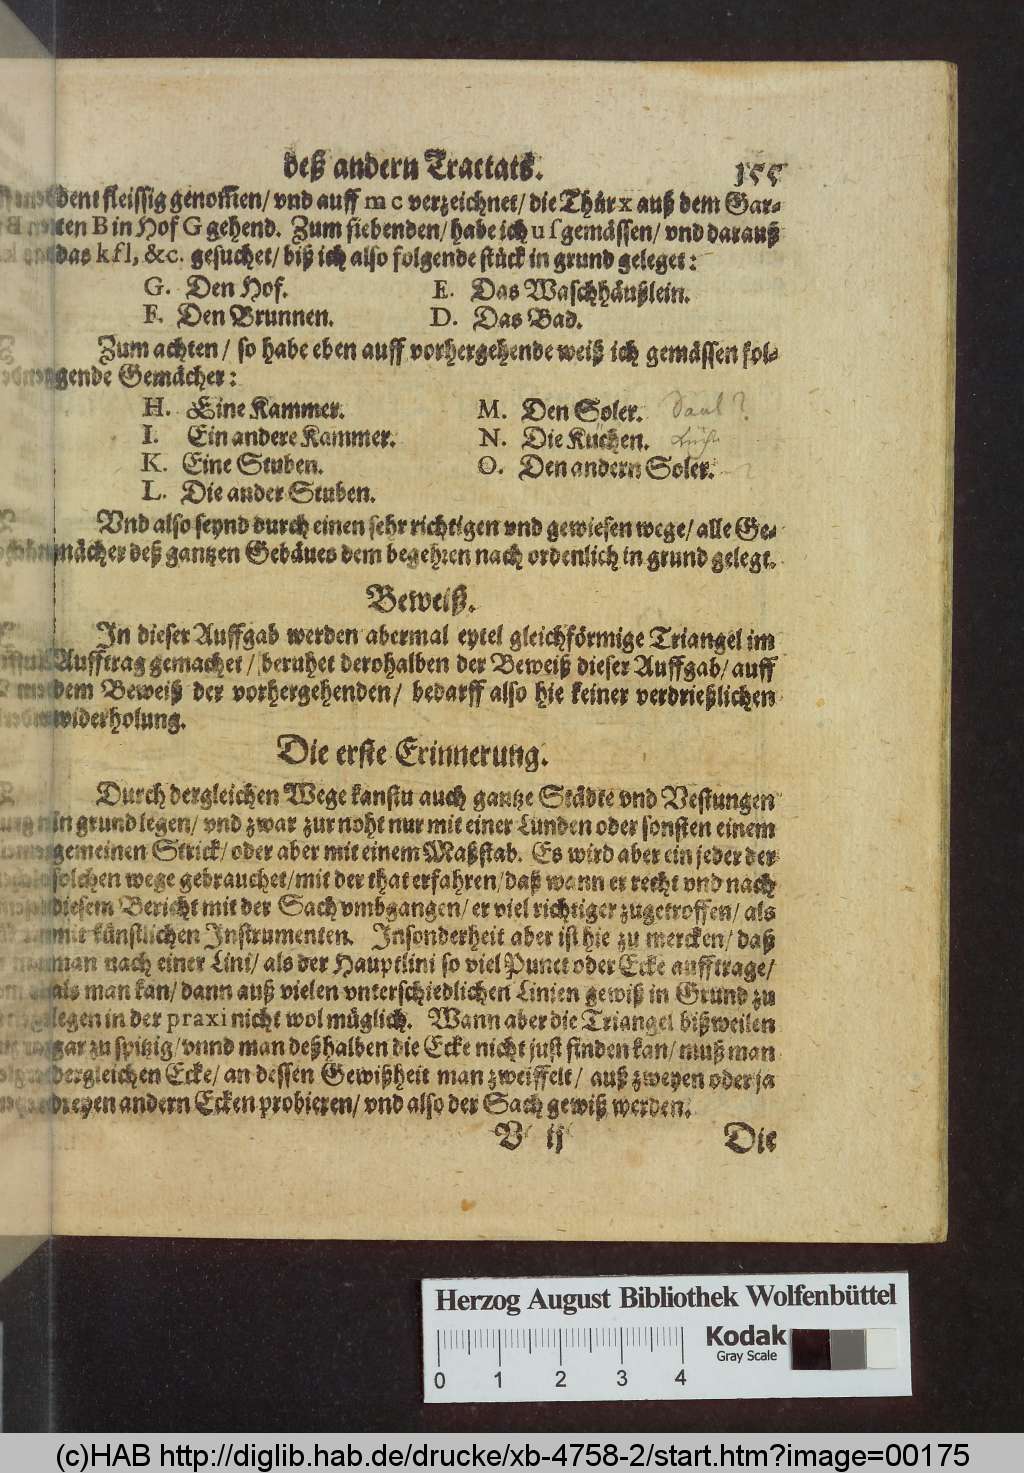 deß andern Tractats. 155
dent fleissig genom̃en/ vnd auff m c verzeichnet/ die Thür x auß dem Gar-
ten B in Hof G gehend. Zum siebenden/ habe ich u ſ gemässen/ vnd darauß
das k f l, &c. gesuchet/ biß ich also folgende stück in grund geleget:
G. Den Hof. E. Das Waschhäußlein.
F. Den Brunnen. D. Das Bad.
Zum achten/ so habe eben auff vorhergehende weiß ich gemässen fol-
gende Gemächer:
H. Eine Kammer. M. Den Soler. Saal?
I. Ein andere Kammer. N. Die Kuchen.
K. Eine Stuben. O. Den andern Soler.
L. Die ander Stuben.
Vnd also seynd durch einen sehr richtigen vnd gewiesen wege/ alle Ge-
mächer deß gantzen Gebäues dem begehren nach ordenlich in grund gelegt.
Beweiß.
In dieser Auffgab werden abermal eytel gleichförmige Triangel im
Aufftrag gemachet/ beruhet derohalben der Beweiß dieser Auffgab/ auff
dem Beweiß der vorhergehenden/ bedarff also hie keiner verdrießlichen
widerholung.
Die erste Erinnerung.
Durch dergleichen Wege kanstu auch gantze Städte vnd Vestungen
in grund legen/ vnd zwar zur noht nur mit einer Lunden oder sonsten einem
gemeinen Strick/ oder aber mit einem Maßstab. Es wird aber ein jeder der
solchen wege gebrauchet/ mit der that erfahren/ daß wann er recht vnd nach
diesem Bericht mit der Sach vmbgangen/ er viel richtiger zugetroffen/ als
mit künstlichen Instrumenten. Insonderheit aber ist hie zu mercken/ daß
man nach einer Lini/ als der Hauptlini so viel Punct oder Ecke aufftrage/
als man kan/ dann auß vielen vnterschiedlichen Linien gewiß in Grund zu
legen in der praxi nicht wol müglich. Wann aber die Triangel bißweilen
gar zu spitzig/ vnnd man deßhalben die Ecke nicht just finden kan/ muß man
dergleichen Ecke/ an dessen Gewißheit man zweiffelt/ auß zweyen oder ja
dreyen andern Ecken probieren/ vnd also der Sach gewiß werden.
V ij Die
Herzog August Bibliothek Wolfenbüttel
Kodak
Gray Scale
0 1 2 3 4
(c)HAB http://diglib.hab.de/drucke/xb-4758-2/start.htm?image=00175